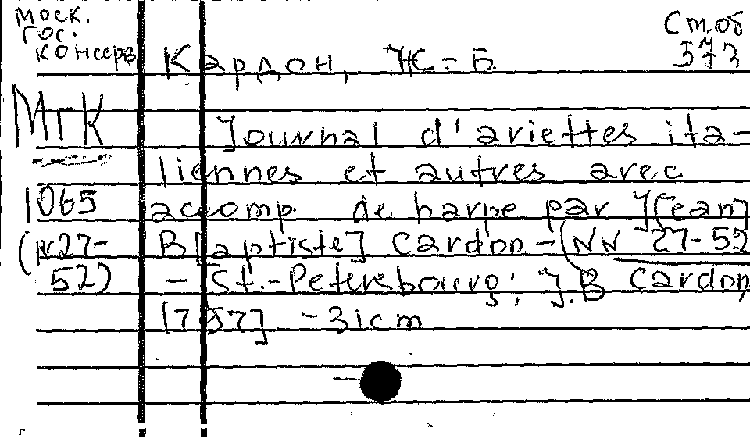 Моск.
Гос.
консерв
Ст.об
573
Кардон, Ж.-Б
МГК
Journal d'ariettes ita-
liennes et autres avec
1065
accomp de harpe par J[ean]
(N27-
B[aptiste] Cardon - (NN 27-52
52)
- St.-Petersbourg: J.B Cardon,
- 31cm